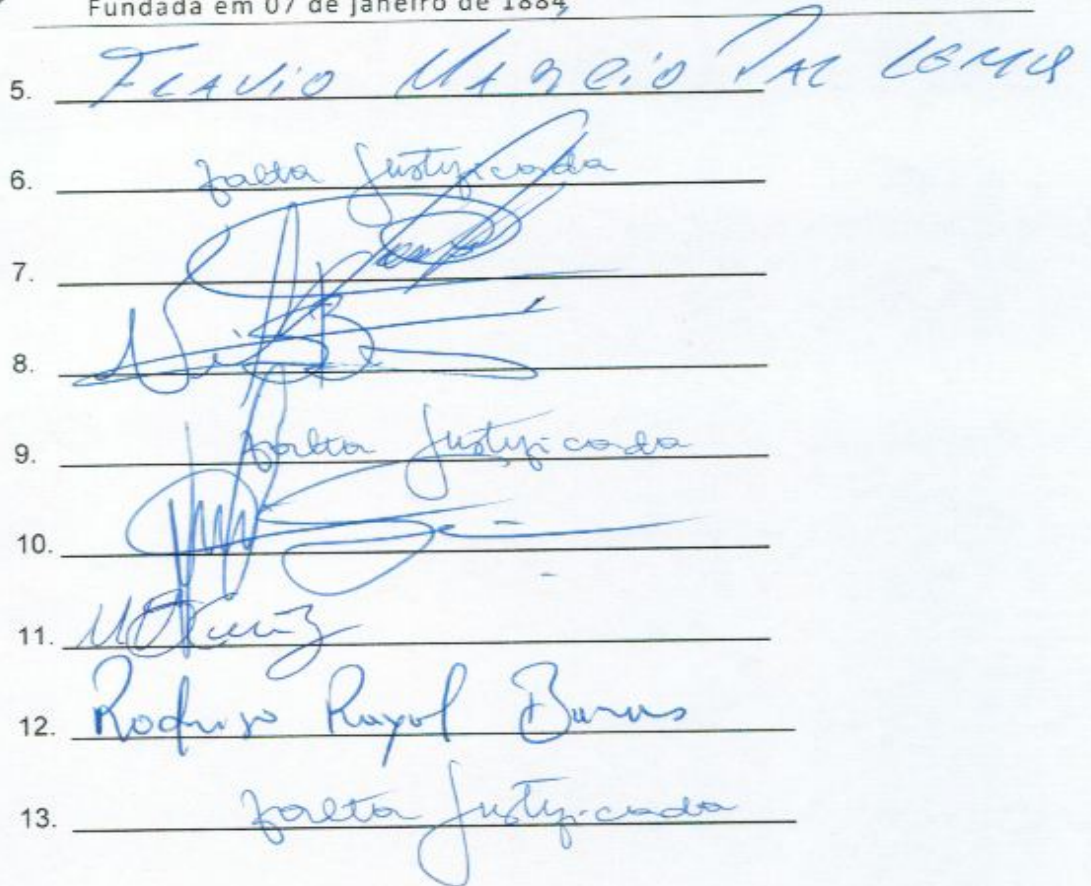 Fundada em 07 de janeiro de 1884
5. FLAVIO MARCIO PAZ LEMOS
6. falta justificada
7.
8.
9. falta justificada
10.
11.
12. Rodrigo Rayol Barros
13. falta justificada